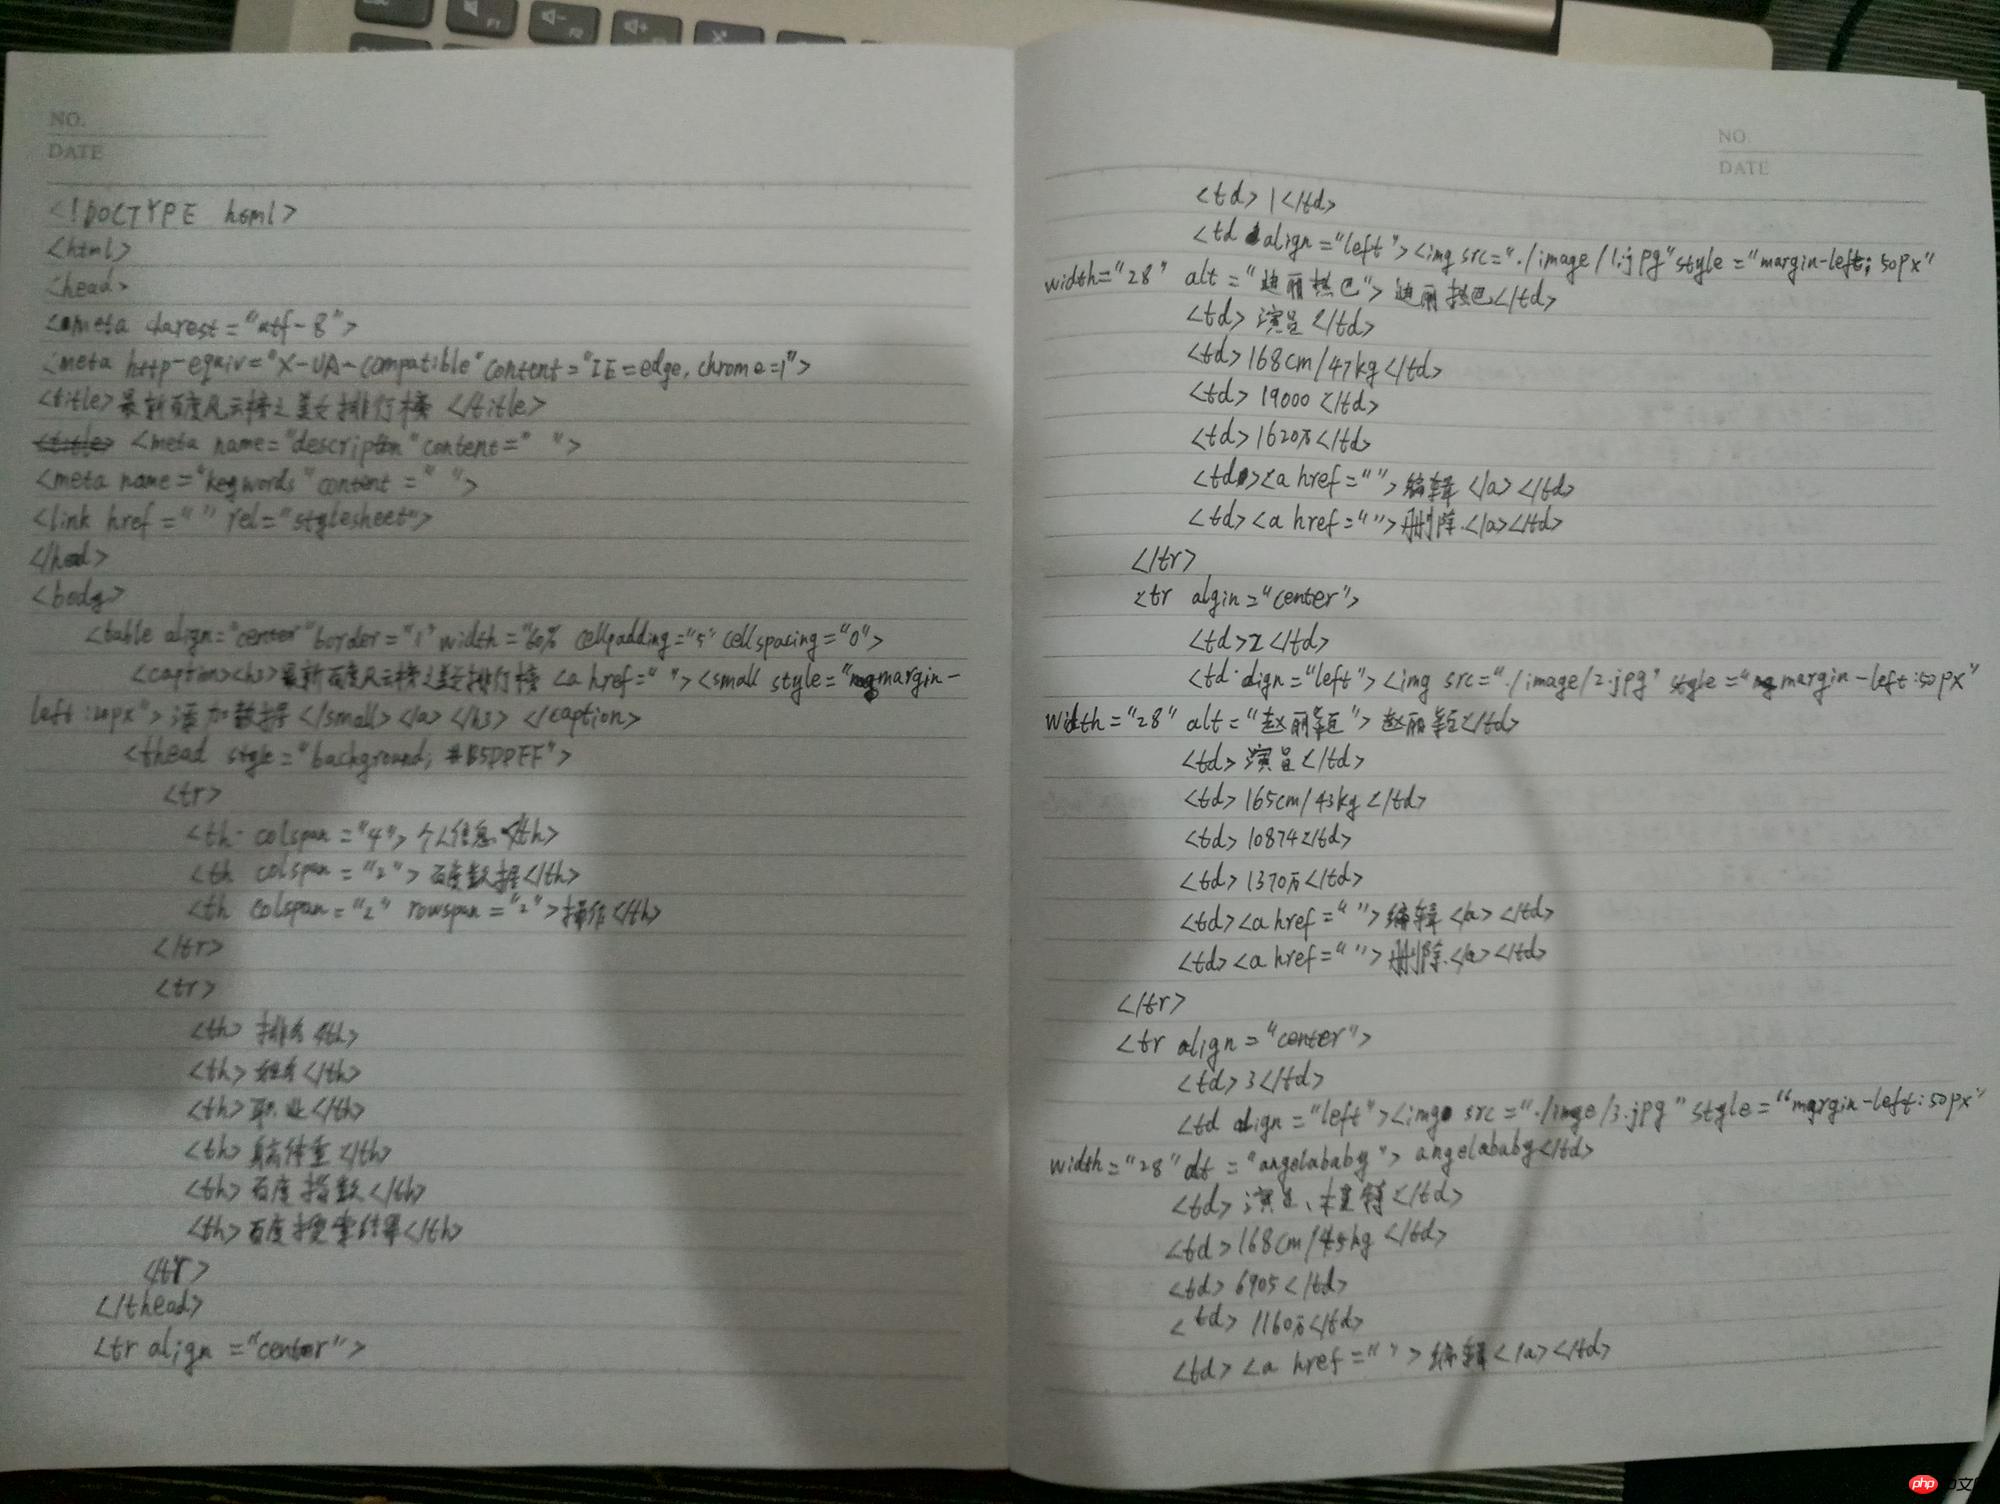 F1
F2
NO.
DATE
<!DOCTYPE html>
<html>
<head>
<meta charest="utf-8">
<meta http-equiv="X-UA-compatible" content="IE=edge, chrome=1">
<title>最新百度风云榜之美女排行榜</title>
<meta name="description" content=" ">
<meta name="keywords" content=" ">
<link href=" " rel="stylesheet">
</head>
<body>
<table align="center" border="1" width="60% cellpadding="5" cellspacing="0">
<caption><h3>最新百度风云榜之美女排行榜 <a href=" "><small style="margin-
left:20px">添加数据</small></a></h3></caption>
<thead style="background; #B5DPFF">
<tr>
<th colspan="4">个人信息</th>
<th colspan="2">百度数据</th>
<th colspan="2" rowspan="2">操作</th>
</tr>
<tr>
<th>排名</th>
<th>姓名</th>
<th>职业</th>
<th>身高体重</th>
<th>百度指数</th>
<th>百度搜索结果</th>
</tr>
</thead>
<tr align="center">
NO.
DATE
<td>1</td>
<td align="left"><img src="./image/1.jpg" style="margin-left; 50px"
width="28" alt="迪丽热巴">迪丽热巴</td>
<td>演员</td>
<td>168cm/47kg</td>
<td>19000</td>
<td>1620万</td>
<td><a href="">编辑</a></td>
<td><a href="">删除</a></td>
</tr>
<tr algin="center">
<td>2</td>
<td align="left"><img src="./image/2.jpg" style="margin-left:50px"
width="28" alt="赵丽颖">赵丽颖</td>
<td>演员</td>
<td>165cm/43kg</td>
<td>10874</td>
<td>1370万</td>
<td><a href=" ">编辑</a></td>
<td><a href=" ">删除</a></td>
</tr>
<tr align="center">
<td>3</td>
<td align="left"><img src="./imge/3.jpg" style="margin-left:50px"
width="28" alt="angelababy">angelababy</td>
<td>演员、模特</td>
<td>168cm/45kg</td>
<td>6905</td>
<td>1160万</td>
<td><a href=" ">编辑</a></td>
php